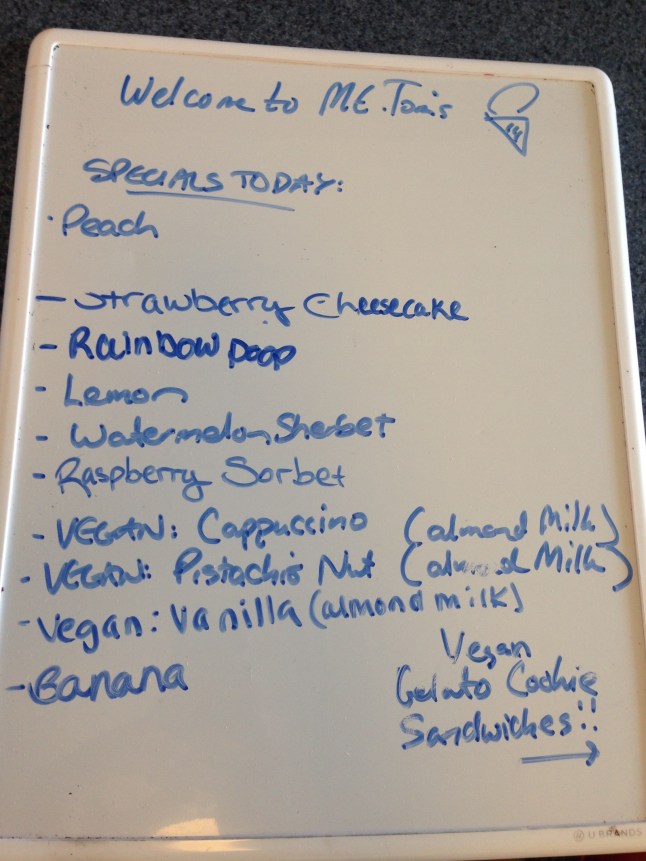 Welcome to ME.Tom's
SPECIALS TODAY:
· Peach
- Strawberry Cheesecake
- Rainbow poop
- Lemon
- Watermelon Sherbet
- Raspberry Sorbet
- VEGAN: Cappuccino (almond Milk)
- VEGAN: Pistachio Nut (almond Milk)
- Vegan: Vanilla (almond milk)
- Banana
Vegan
Gelato Cookie
Sandwiches!!
U BRANDS